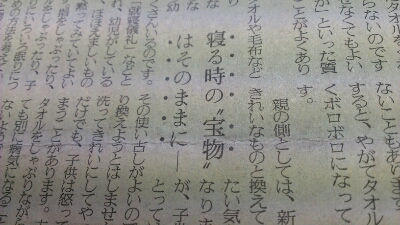 らないのです
せなくてもよい
か」といった質
ことがよくあり
す。
タオルや毛布など
ないこともあります
すると、やがてタオル
くボロボロになって
寝る時の〝宝物〟
はそのままに―
親の側としては、新
きれいなものと換えて
たい気
なりま
が、子
とって
その使い古しがよいので
り換えようとはしませ
洗ってきれいにしてや
だけでも、子供は怒って
まうことがあります。
タオルをしゃぶりながら
ても別に病気になること
くさんいるのです。
「就寝儀礼」などと
れ、幼児がしている
ほほえましいもの
黙ってみていてよい
をしゃぶったり、子